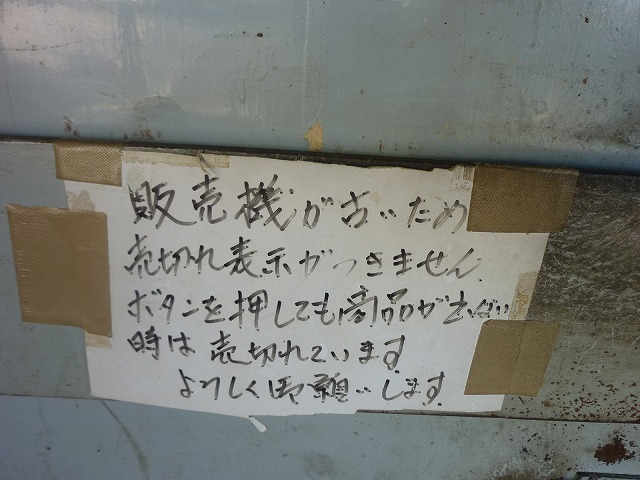 販売機が古いため
売切れ表示がつきません
ボタンを押しても商品が出ない
時は売切れています
よろしくお願いします